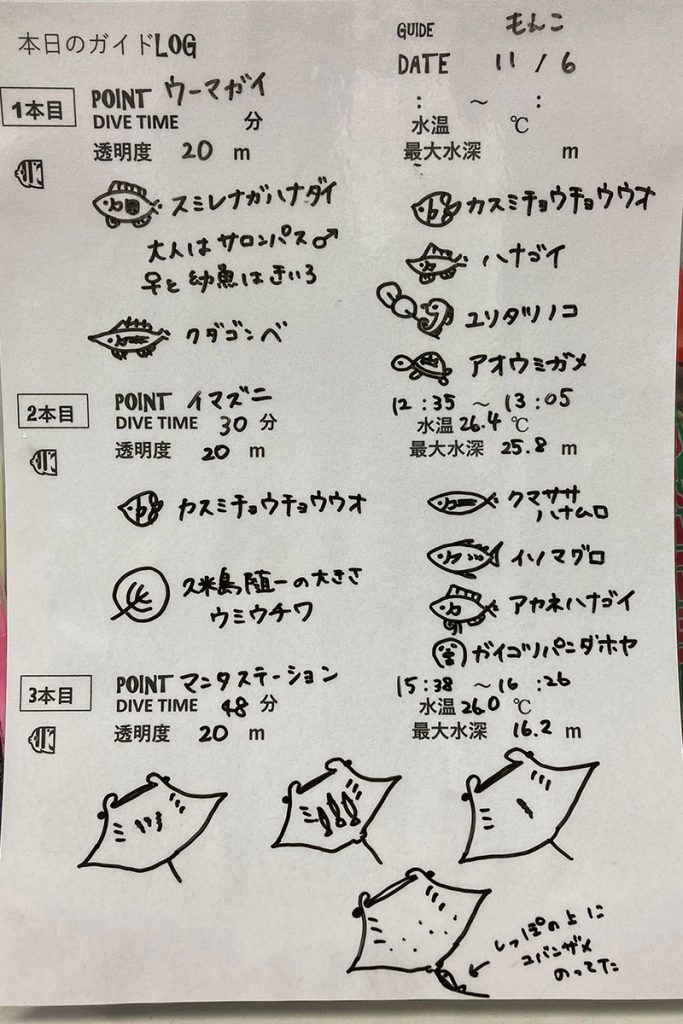 本日のガイドLOG
GUIDE もんこ
DATE 11 / 6
1本目
POINT ウーマガイ
DIVE TIME 分
: ～ :
水温 ℃
透明度 20 m
最大水深 m
スミレナガハナダイ
大人はサロンパス♂
♀と幼魚はきいろ
クダゴンベ
カスミチョウチョウウオ
ハナゴイ
ユリタツノコ
アオウミガメ
2本目
POINT イマズニ
DIVE TIME 30 分
12:35 ～ 13:05
水温 26.4 ℃
透明度 20 m
最大水深 25.8 m
カスミチョウチョウウオ
久米島随一の大きさ
ウミウチワ
クマササ
ハナムロ
イソマグロ
アカネハナゴイ
ガイコツパンダホヤ
3本目
POINT マンタステーション
DIVE TIME 48 分
15:38 ～ 16:26
水温 26.0 ℃
透明度 20 m
最大水深 16.2 m
しっぽの上に
コバンザメ
のってた